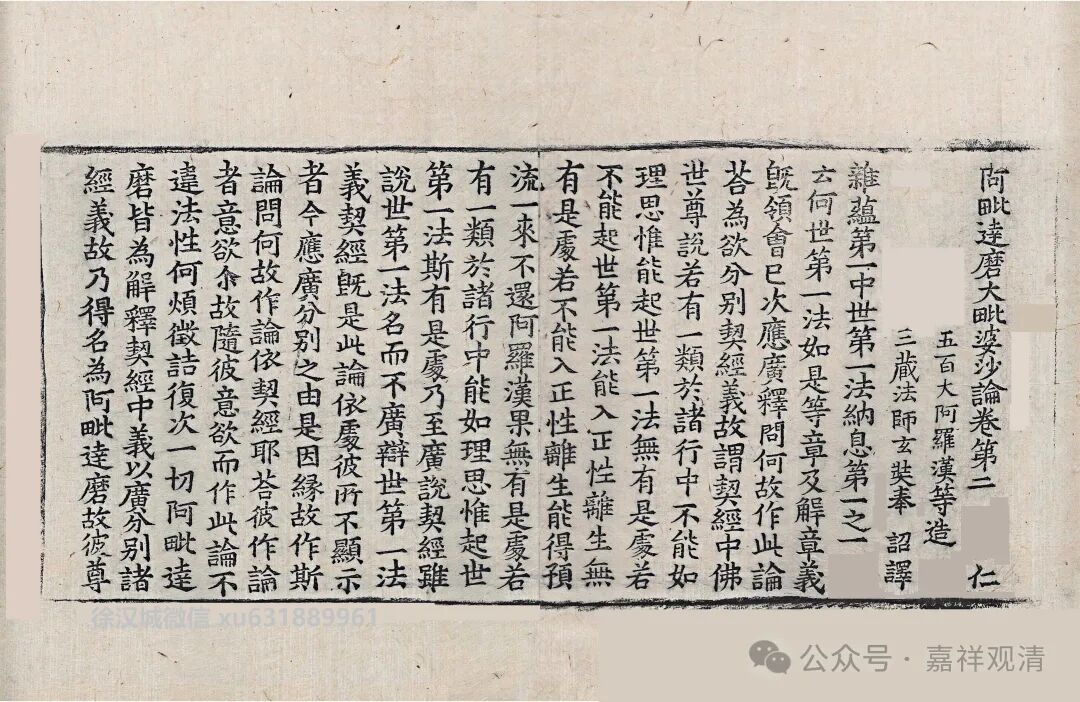 阿毗達磨大毗婆沙論卷第二 仁
五百大阿羅漢等造
三藏法師玄奘奉 詔譯
雜蘊第一中世第一法納息第一之一
云何世第一法如是等章及解章義
旣領會已次應廣釋問何故作此論
荅為欲分别契經義故謂契經中佛
世尊說若有一類於諸行中不能如
理思惟能起世第一法無有是處若
不能起世第一法能入正性離生無
有是處若不能入正性離生能得預
流一來不還阿羅漢果無有是處若
有一類於諸行中能如理思惟起世
第一法斯有是處乃至廣說契經雖
說世第一法名而不廣辯世第一法
義契經旣是此論依處彼所不顯示
者今應廣分别之由是因緣故作斯
論問何故作論依契經耶荅彼作論
者意欲尒故隨彼意欲而作此論不
違法性何煩徵詰復次一切阿毗達
磨皆為解釋契經中義以廣分别諸
經義故乃得名為阿毗達磨故彼尊
徐汉城微信 xu631889961
公众号·嘉祥观清